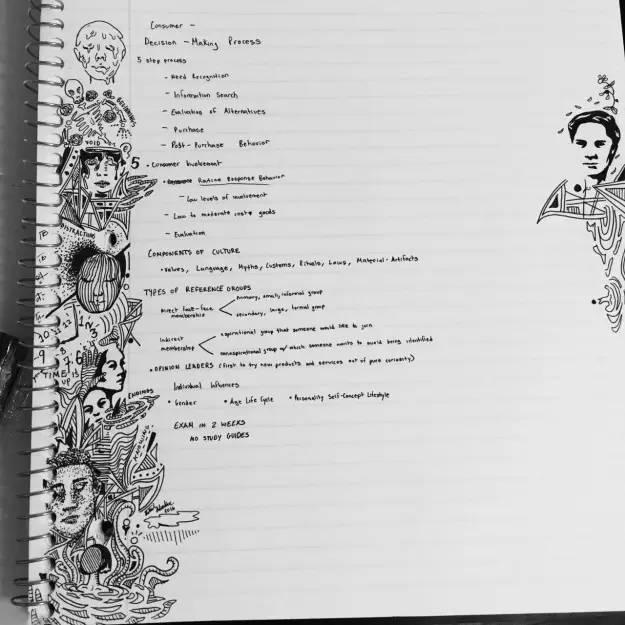 Consumer -
Decision - Making Process
5 step process
- Need Recognition
- Information Search
- Evaluation of Alternatives
- Purchase
- Post-Purchase Behavior
5 • Consumer Involvement
• Routine Response Behavior
- Low levels of involvement
- Low to moderate cost goods
- Evaluation
COMPONENTS OF CULTURE
• Values, Language, Myths, Customs, Rituals, Laws, Material-Artifacts
TYPES OF REFERENCE GROUPS
Direct face-face membership
primary, small, informal group
secondary, large, formal group
Indirect membership
aspirational group that someone would like to join
nonaspirational group w/ which someone wants to avoid being identified
• OPINION LEADERS (first to try new products and services out of pure curiosity)
Individual Influences
• Gender • Age Life Cycle • Personality Self-Concept Lifestyle
EXAM IN 2 WEEKS
NO STUDY GUIDES
BEGINNINGS
VOID
DISTRACTIONS
TIME IS UP
ENDINGS
2016